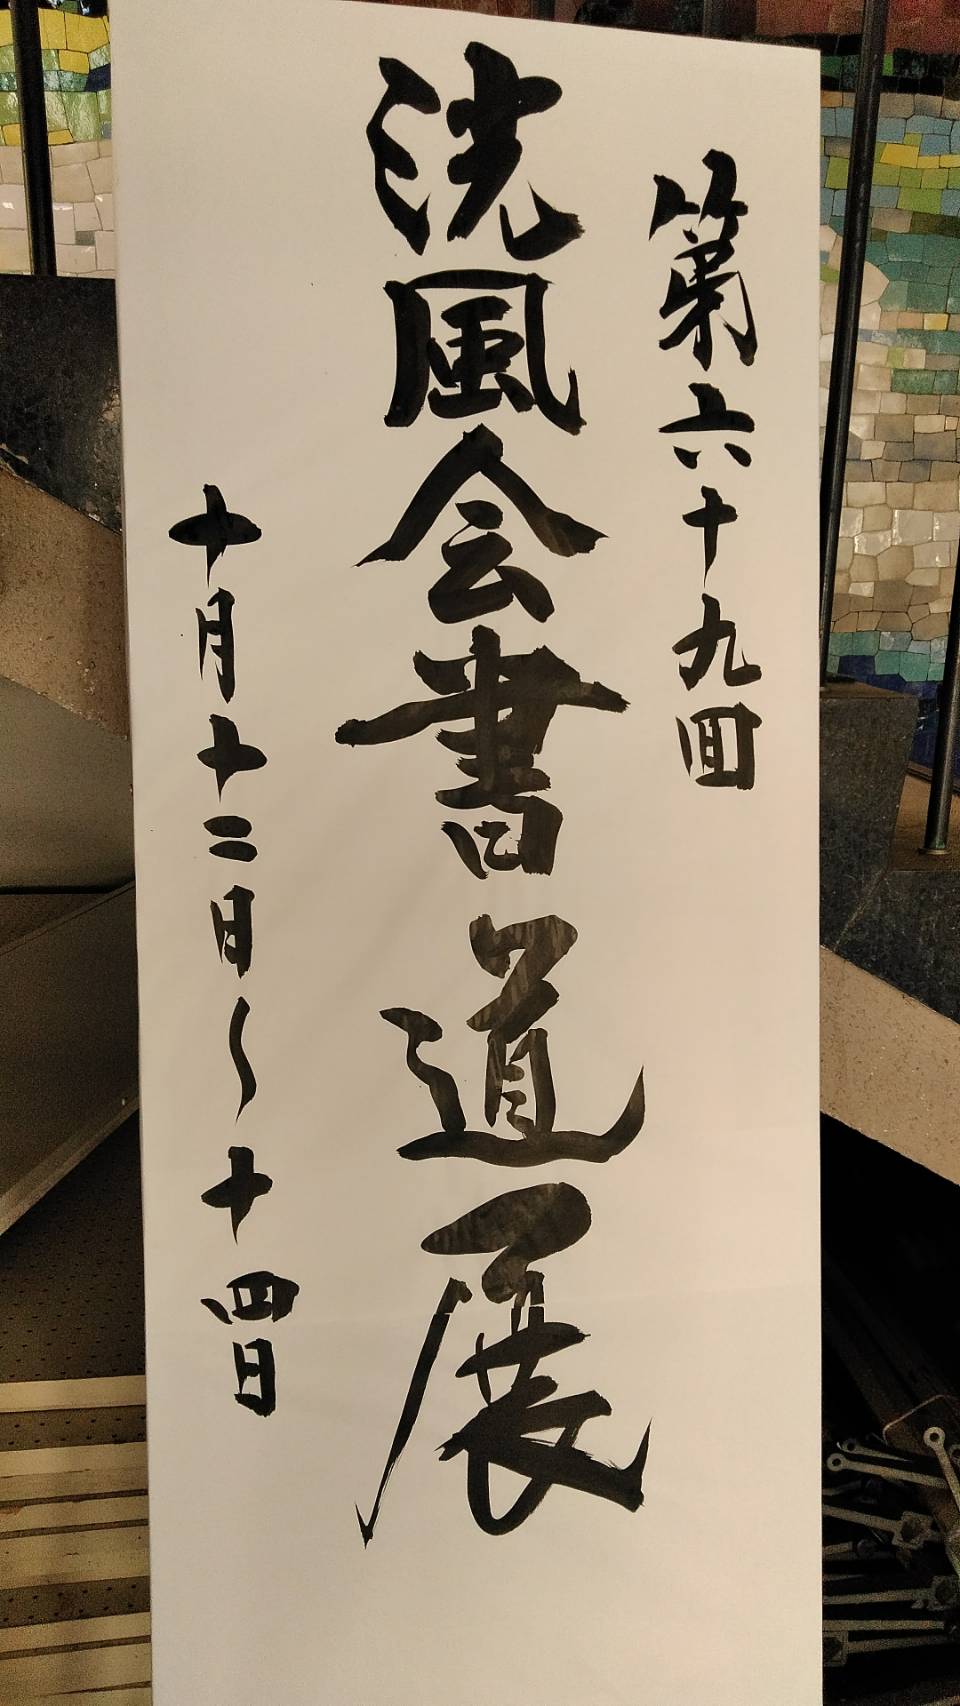 第六十九回
洸風会書道展
十月十二日〜十四日